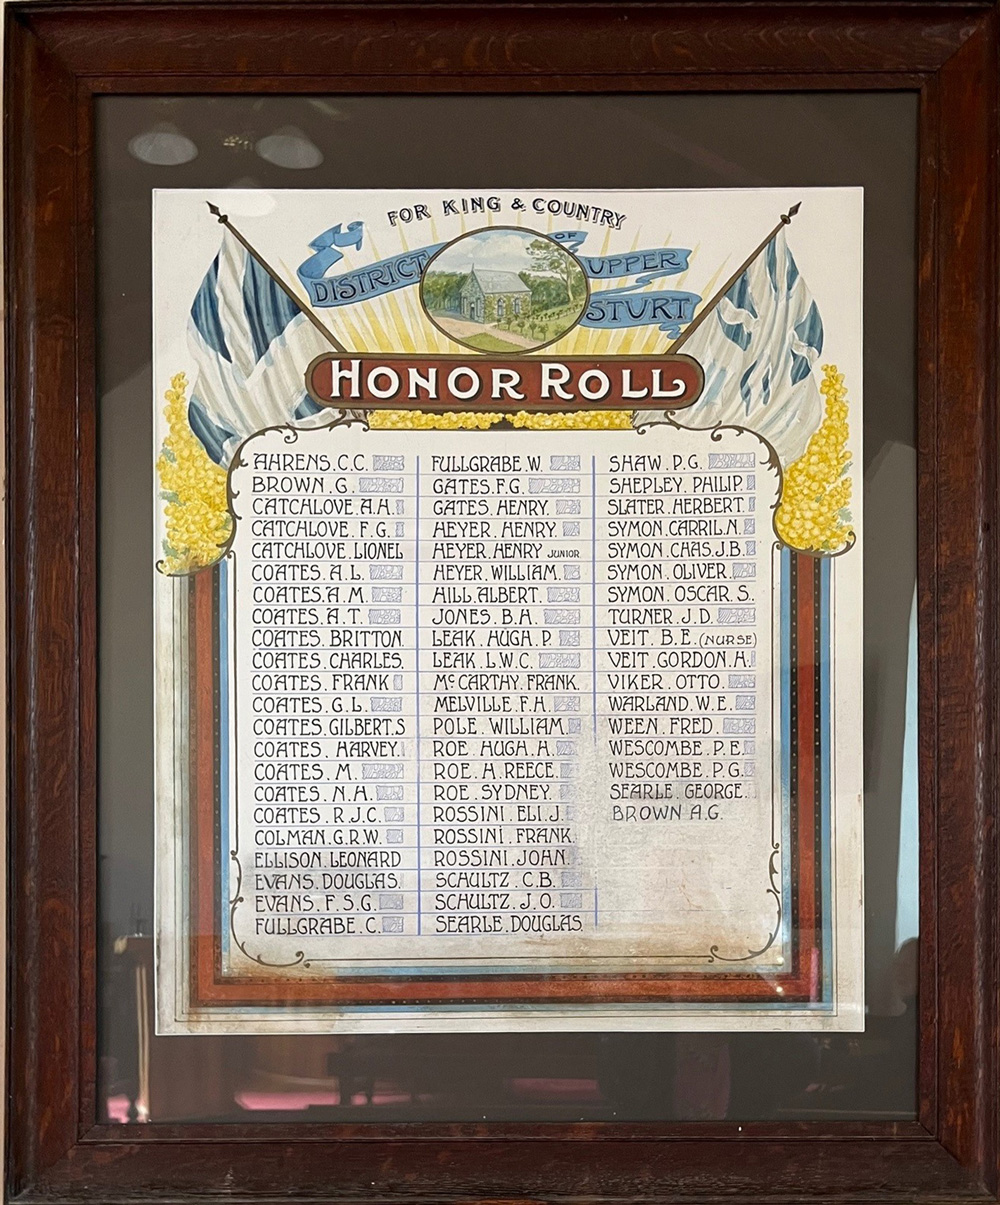 FOR KING & COUNTRY
DISTRICT OF UPPER STURT
HONOR ROLL
AHRENS. C.C.
BROWN. G.
CATCHLOVE. A.H.
CATCHLOVE. F.G.
CATCHLOVE. LIONEL
COATES. A.L.
COATES. A.M.
COATES. A.T.
COATES. BRITTON.
COATES. CHARLES.
COATES. FRANK
COATES. G.L.
COATES. GILBERT. S
COATES. HARVEY.
COATES. M.
COATES. N.H.
COATES. R.J.C.
COLMAN. G.R.W.
ELLISON. LEONARD
EVANS. DOUGLAS.
EVANS. F.S.G.
FULLGRABE. C.
FULLGRABE. W.
GATES. F.G.
GATES. HENRY.
HEYER. HENRY.
HEYER. HENRY JUNIOR
HEYER. WILLIAM.
HILL. ALBERT.
JONES. B.H.
LEAK. HUGH. P.
LEAK. L.W.C.
McCARTHY. FRANK.
MELVILLE. F.H.
POLE. WILLIAM.
ROE. HUGH. H.
ROE. H. REECE.
ROE. SYDNEY.
ROSSINI. ELI. J.
ROSSINI. FRANK.
ROSSINI. JOHN.
SCHULTZ. C.B.
SCHULTZ. J.O.
SEARLE. DOUGLAS.
SHAW. P.G.
SHEPLEY. PHILIP.
SLATER. HERBERT.
SYMON. CARRIL. N.
SYMON. CHAS. J.B.
SYMON. OLIVER.
SYMON. OSCAR. S.
TURNER. J.D.
VEIT. B.E. (NURSE)
VEIT. GORDON. H.
VIKER. OTTO.
WARLAND. W.E.
WEEN. FRED.
WESCOMBE. P.E.
WESCOMBE. P.G.
SEARLE. GEORGE.
BROWN A.G.